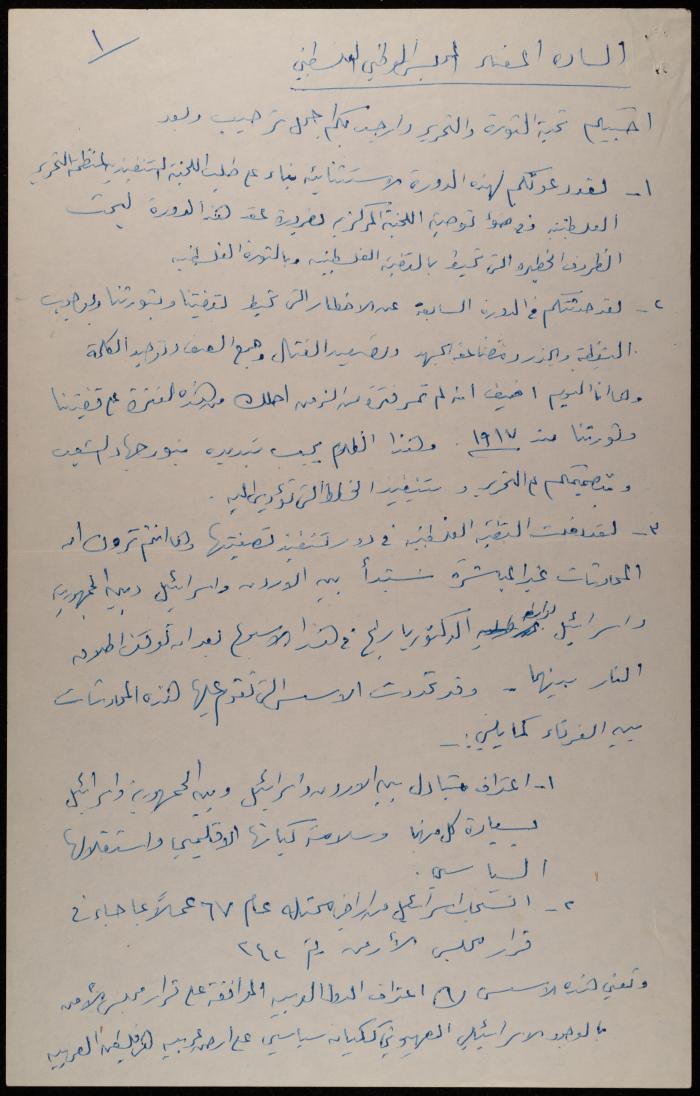 ١
السادة أعضاء المجلس الوطني الفلسطيني
احييكم تحية الثورة والتحرير وارحب بكم اجمل ترحيب وبعد
١- لقد دعوتكم لهذه الدورة الاستثنائية بناء على طلب اللجنة التنفيذية لمنظمة التحرير
الفلسطينية وفي ضوء توصية اللجنة المركزية لضرورة عقد هذه الدورة لبحث
الظروف الخطيرة التي تحيط بالقضية الفلسطينية وبالثورة الفلسطينية
٢- لقد حدثتكم في الدورة السابعة عن الاخطار التي تحيط لقضيتنا وبثورتنا وبوجوب
اليقظة والحذر ومضاعفة الجهد وتصعيد القتال وجمع الصف وتوحيد الكلمة
وها انا اليوم اضيف انه لم تمر فترة من الزمن احلك من هذه الفترة على قضيتنا
وثورتنا منذ ١٩١٧. وهذا الظلام يجب تبديده بنور جهادكم
وتصميمكم على التحرير وتنفيذ الخطط التي تؤدي اليه.
٣- لقد دخلت القضية الفلسطينية في دور تنفيذ تصفيتها وها انتم ترون ان
المحادثات غير المباشرة ستبدأ بين الاردن واسرائيل وبين الجمهورية
واسرائيل الدكتور يارنج في هذا الاسبوع بعد ان توقف اطلاق
النار بينهما - وقد تحددت الاسس التي تقوم عليها هذه المحادثات
بين الفرقاء كما يلي:-
١- اعتراف متبادل بين الاردن واسرائيل وبين الجمهورية واسرائيل
بسيادة كل منهما وسلامة كيانها الاقليمي واستقلالها
السياسي.
٢- انسحاب اسرائيل من اراض محتله عام ٦٧ عملاً بما جاء في
قرار مجلس الأمن رقم ٢٤٢
وتعني هذه الاسس اعتراف الدول العربية الموافقة على قرار مجلس الامن
بالوجود الاسرائيلي الصهيوني ككيان سياسي على ارض عربيه هي فلسطين العربيه